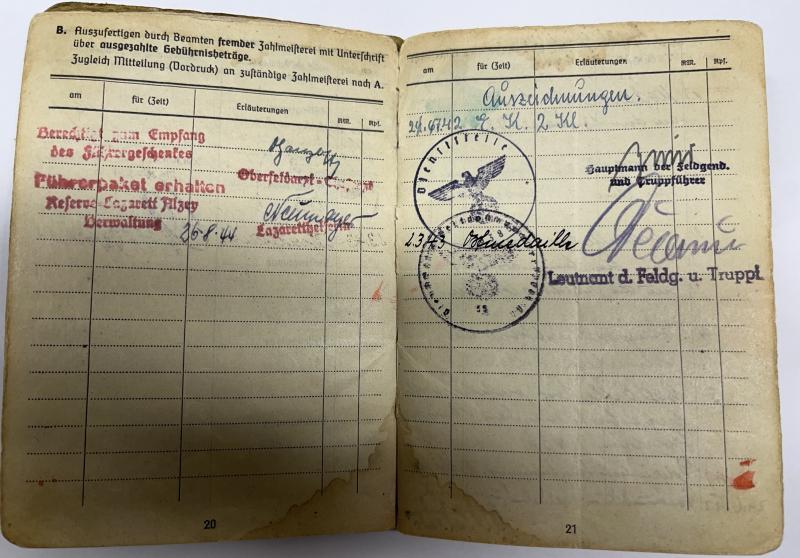 B. Auszufertigen durch Beamten fremder Zahlmeisterei mit Unterschrift
über ausgezahlte Gebührnisbeträge.
Zugleich Mitteilung (Vordruck) an zuständige Zahlmeisterei nach A.
am für (Zeit) Erläuterungen RM. Rpf.
Berechtigt zum Empfang
des Führergeschenkes
Oberfeldarzt
Führerpaket erhalten
Reserve-Lazarett Alzey
Verwaltung
26.8.44
20
am für (Zeit) Erläuterungen RM. Rpf.
Auszeichnungen.
E. K. 2 Kl.
Dienststelle
Hauptmann der Feldgend.
und Truppführer
Leutnant d. Feldg. u. Truppf.
21